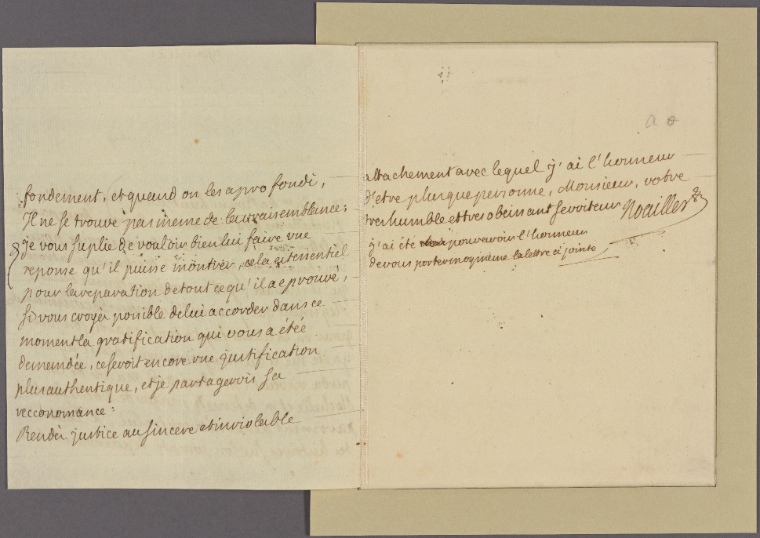 fondement, et quend on les aprofondi,
Il ne se trouve pas meme de la vraisemblance;
Je vous suplie de vouloir bien lui faire une
reponse qu'il puisse montrer, cela est essentiel
pour la reparation de tout ce qu'il a eprouvé,
si vous croyés possible de lui accorder dans ce
moment la gratification qui vous a étée
demendée, ce seroit encore une justification
plus authentique, et je partagerois sa
reconoinance:
Rendés justice au sincere et inviolable
a o
attachement avec lequel j'ai l'honneur
d'etre plus que personne, Monsieur, votre
tres humble et tres obeinant serviteur Noailles
j'ai été pour avoir l'honneur
de vous porter moy meme la lettre ci jointe